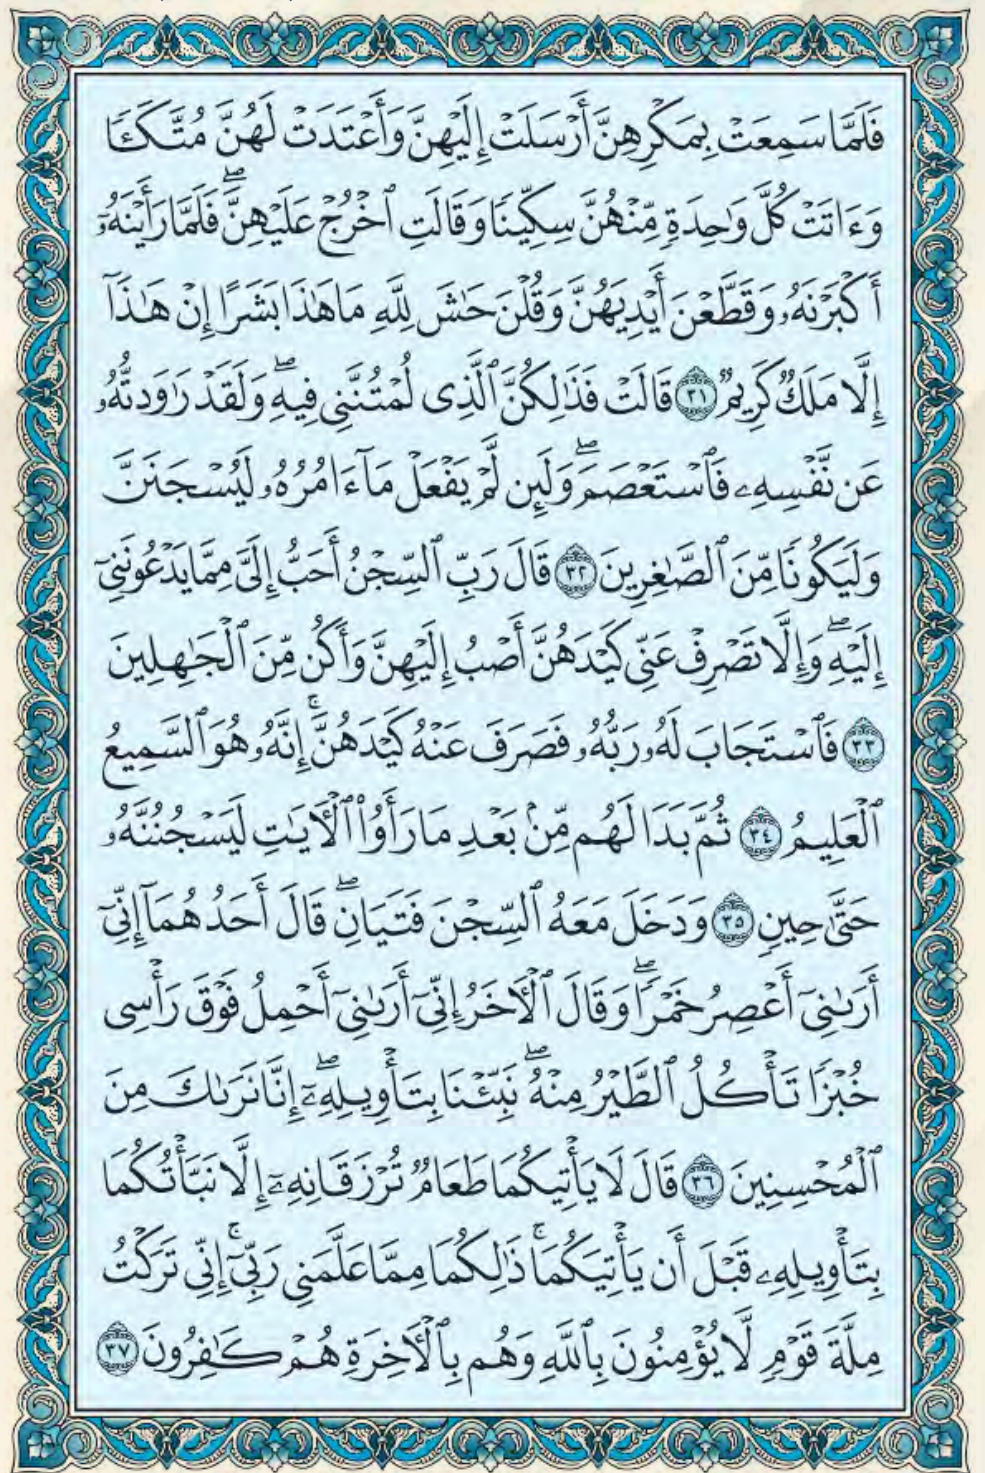 فَلَمَّا سَمِعَتْ بِمَكْرِهِنَّ أَرْسَلَتْ إِلَيْهِنَّ وَأَعْتَدَتْ لَهُنَّ مُتَّكَـًٔا
وَءَاتَتْ كُلَّ وَٰحِدَةٍ مِّنْهُنَّ سِكِّينًا وَقَالَتِ ٱخْرُجْ عَلَيْهِنَّ ۖ فَلَمَّا رَأَيْنَهُۥٓ
أَكْبَرْنَهُۥ وَقَطَّعْنَ أَيْدِيَهُنَّ وَقُلْنَ حَٰشَ لِلَّهِ مَا هَٰذَا بَشَرًا إِنْ هَٰذَآ
إِلَّا مَلَكٌ كَرِيمٌ ٣١ قَالَتْ فَذَٰلِكُنَّ ٱلَّذِى لُمْتُنَّنِى فِيهِ ۖ وَلَقَدْ رَٰوَدتُّهُۥ
عَن نَّفْسِهِۦ فَٱسْتَعْصَمَ ۖ وَلَئِن لَّمْ يَفْعَلْ مَآ ءَامُرُهُۥ لَيُسْجَنَنَّ
وَلَيَكُونًا مِّنَ ٱلصَّٰغِرِينَ ٣٢ قَالَ رَبِّ ٱلسِّجْنُ أَحَبُّ إِلَىَّ مِمَّا يَدْعُونَنِىٓ
إِلَيْهِ ۖ وَإِلَّا تَصْرِفْ عَنِّى كَيْدَهُنَّ أَصْبُ إِلَيْهِنَّ وَأَكُن مِّنَ ٱلْجَٰهِلِينَ
٣٣ فَٱسْتَجَابَ لَهُۥ رَبُّهُۥ فَصَرَفَ عَنْهُ كَيْدَهُنَّ ۚ إِنَّهُۥ هُوَ ٱلسَّمِيعُ
ٱلْعَلِيمُ ٣٤ ثُمَّ بَدَا لَهُم مِّنۢ بَعْدِ مَا رَأَوُا۟ ٱلْـَٔايَٰتِ لَيَسْجُنُنَّهُۥ
حَتَّىٰ حِينٍ ٣٥ وَدَخَلَ مَعَهُ ٱلسِّجْنَ فَتَيَانِ ۖ قَالَ أَحَدُهُمَآ إِنِّىٓ
أَرَىٰنِىٓ أَعْصِرُ خَمْرًا ۖ وَقَالَ ٱلْـَٔاخَرُ إِنِّىٓ أَرَىٰنِىٓ أَحْمِلُ فَوْقَ رَأْسِى
خُبْزًا تَأْكُلُ ٱلطَّيْرُ مِنْهُ ۖ نَبِّئْنَا بِتَأْوِيلِهِۦٓ ۖ إِنَّا نَرَىٰكَ مِنَ
ٱلْمُحْسِنِينَ ٣٦ قَالَ لَا يَأْتِيكُمَا طَعَامٌ تُرْزَقَانِهِۦٓ إِلَّا نَبَّأْتُكُمَا
بِتَأْوِيلِهِۦ قَبْلَ أَن يَأْتِيَكُمَا ۚ ذَٰلِكُمَا مِمَّا عَلَّمَنِى رَبِّىٓ ۚ إِنِّى تَرَكْتُ
مِلَّةَ قَوْمٍ لَّا يُؤْمِنُونَ بِٱللَّهِ وَهُم بِٱلْـَٔاخِرَةِ هُمْ كَٰفِرُونَ ٣٧